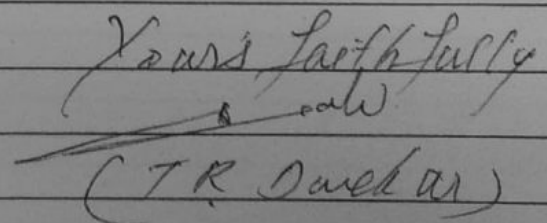 Yours faithfully
(T R Darekar)